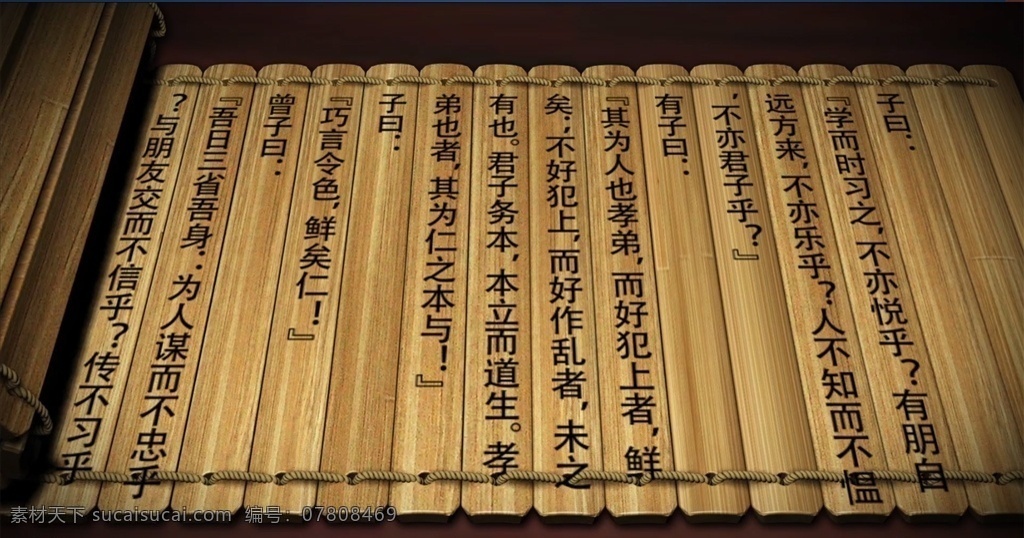 子曰：
『学而时习之，不亦悦乎？有朋自
远方来，不亦乐乎？人不知而不愠
，不亦君子乎？』
有子曰：
『其为人也孝弟，而好犯上者，鲜
矣；不好犯上，而好作乱者，未之
有也。君子务本，本立而道生。孝
弟也者，其为仁之本与！』
子曰：
『巧言令色，鲜矣仁！』
曾子曰：
『吾日三省吾身：为人谋而不忠乎
？与朋友交而不信乎？传不习乎
素材天下 sucaisucai.com 编号：07808469